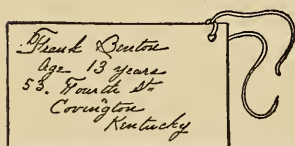 Frank Benton
Age 13 years
53. Fourth St
Covington
Kentucky